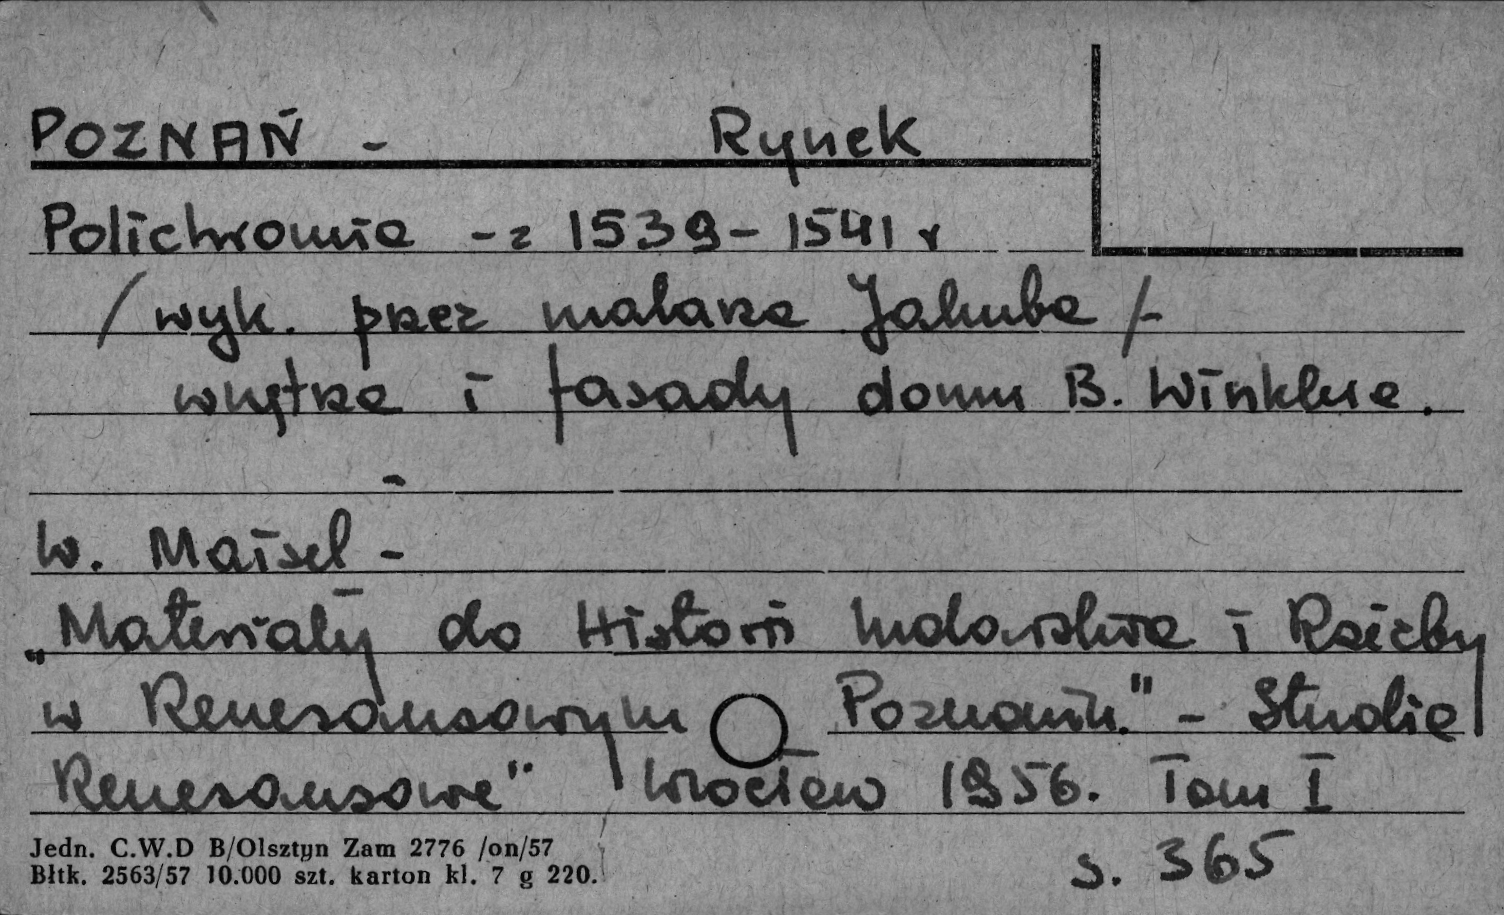 POZNAŃ - Rynek
Polichromia - z 1539 - 1541 r
/ wyk. przez malarza Jakuba / -
wnętrza i fasady domu B. Winklera.
-
W. Maisel -
„Materiały do Historii malarstwa i Rzeźby
w Renesansowym Poznaniu." - Studia
Renesansowe" Wrocław 1956. Tom I
s. 365
Jedn. C.W.D B/Olsztyn Zam 2776 /on/57
Błtk. 2563/57 10.000 szt. karton kl. 7 g 220.